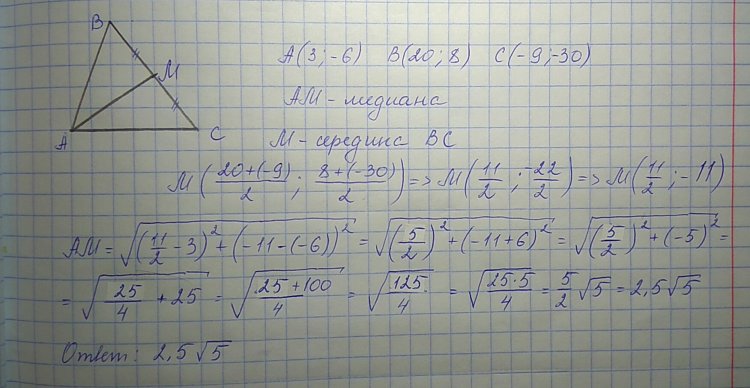 B
M
A
C
A(3;-6) B(20;8) C(-9;-30)
AM - медиана
M - середина BC
M((20+(-9))/2; (8+(-30))/2) => M(11/2; -22/2) => M(11/2; -11)
AM = √((11/2 - 3)² + (-11-(-6))²) = √((5/2)² + (-11+6)²) = √((5/2)² + (-5)²) =
= √(25/4 + 25) = √((25+100)/4) = √(125/4) = √((25·5)/4) = 5/2 √5 = 2,5√5
Ответ: 2,5√5